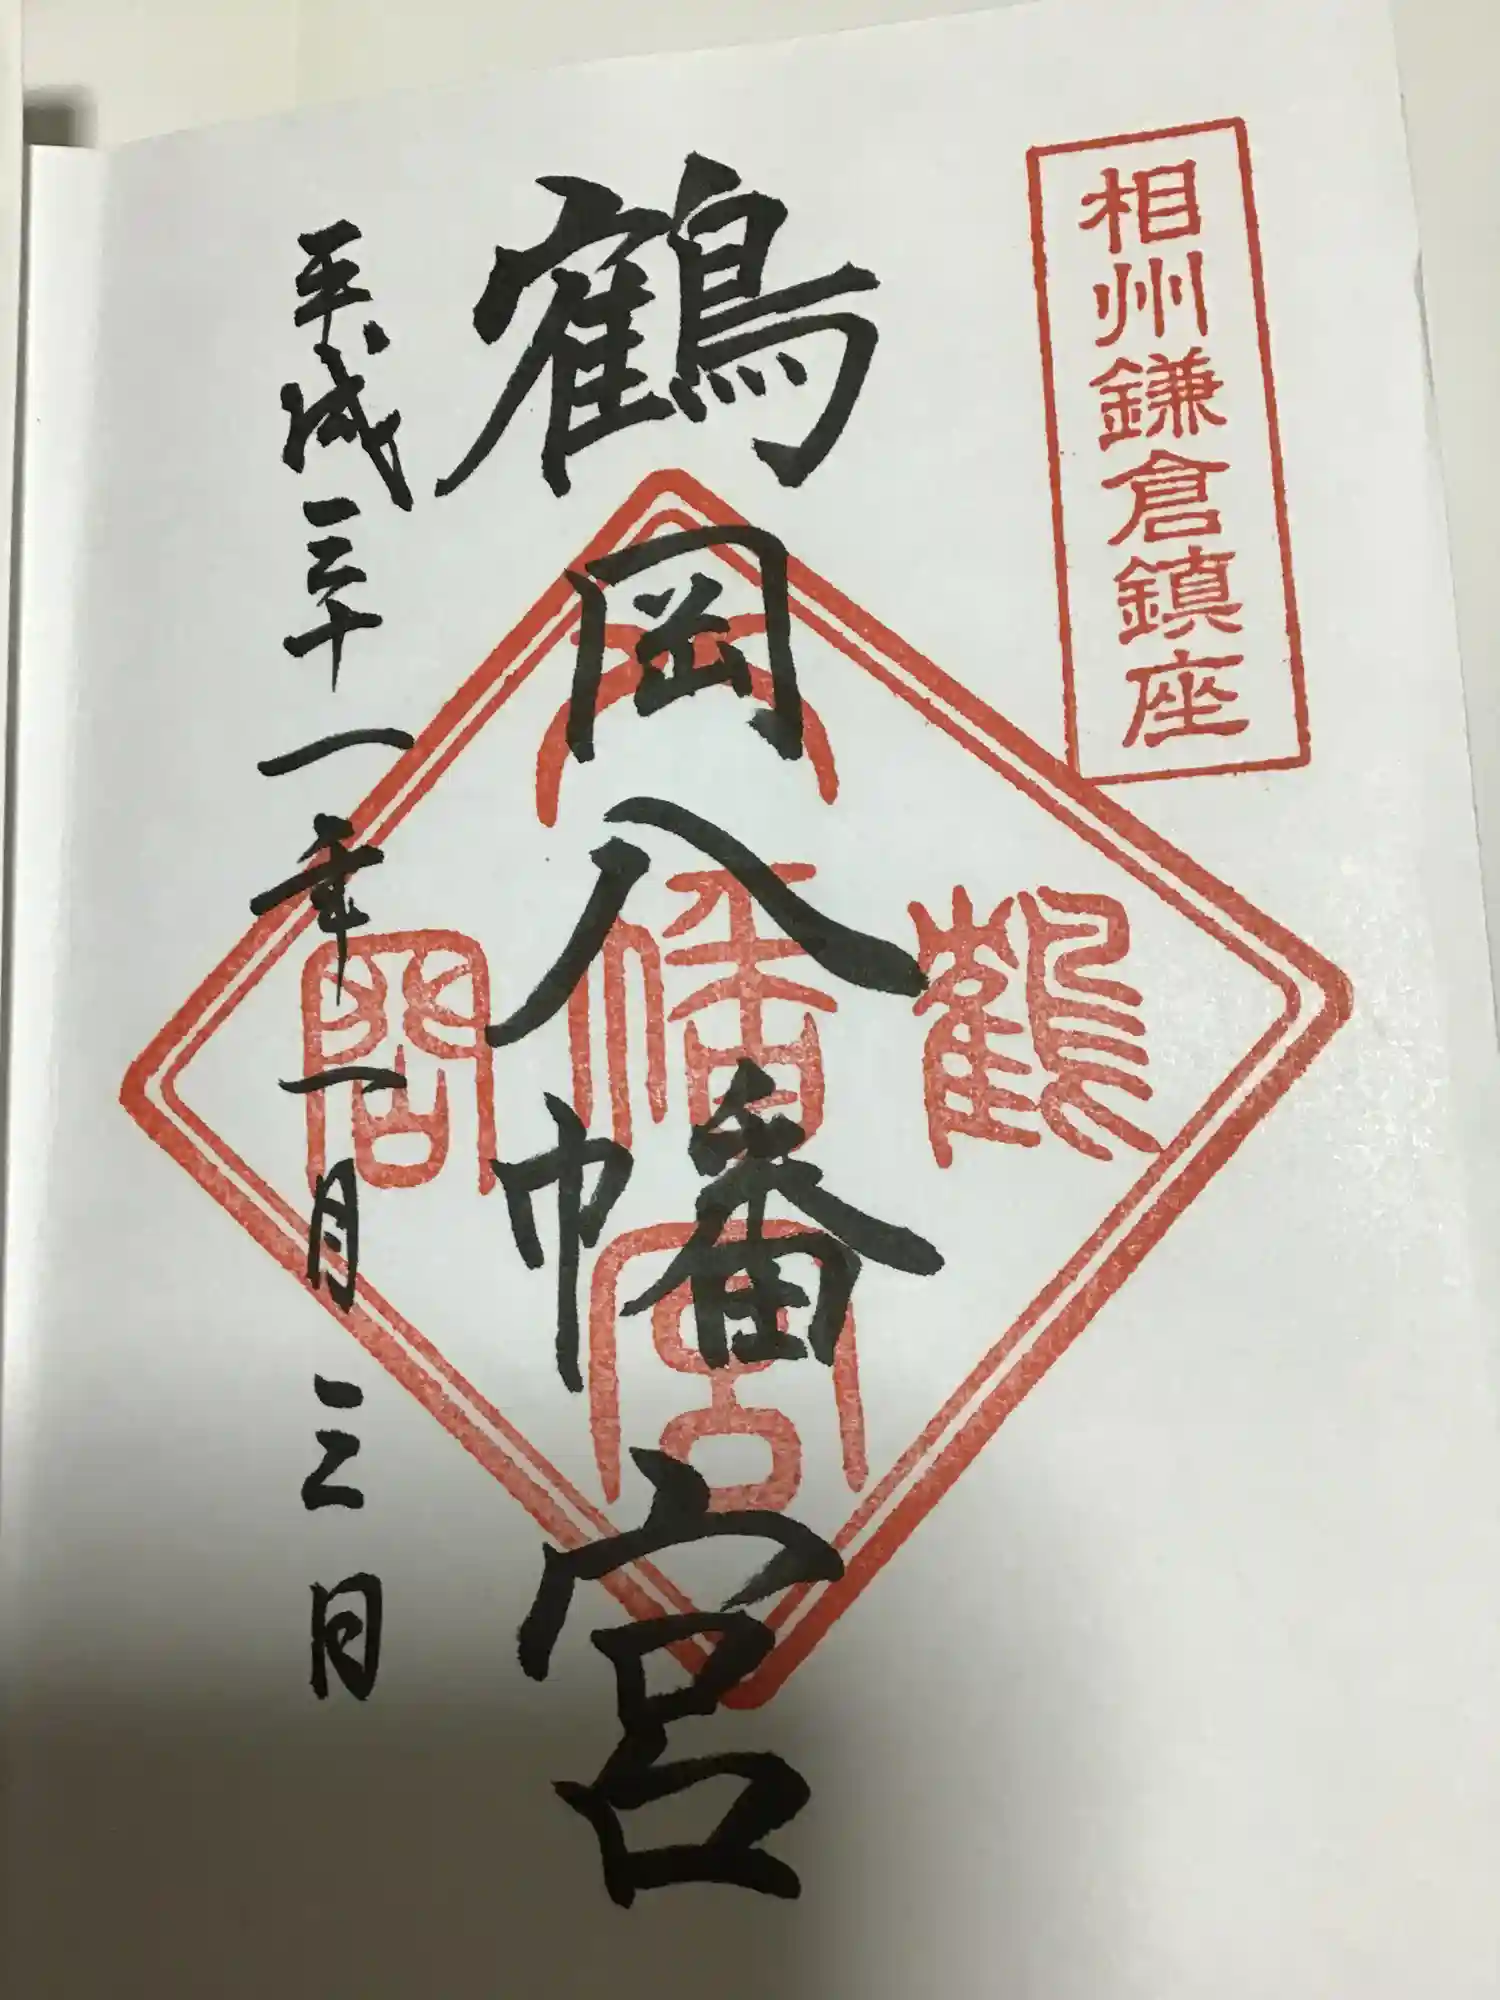 相州鎌倉鎮座
鶴岡八幡宮
平成三十一年一月三日
鶴
八
幡
宮
岡